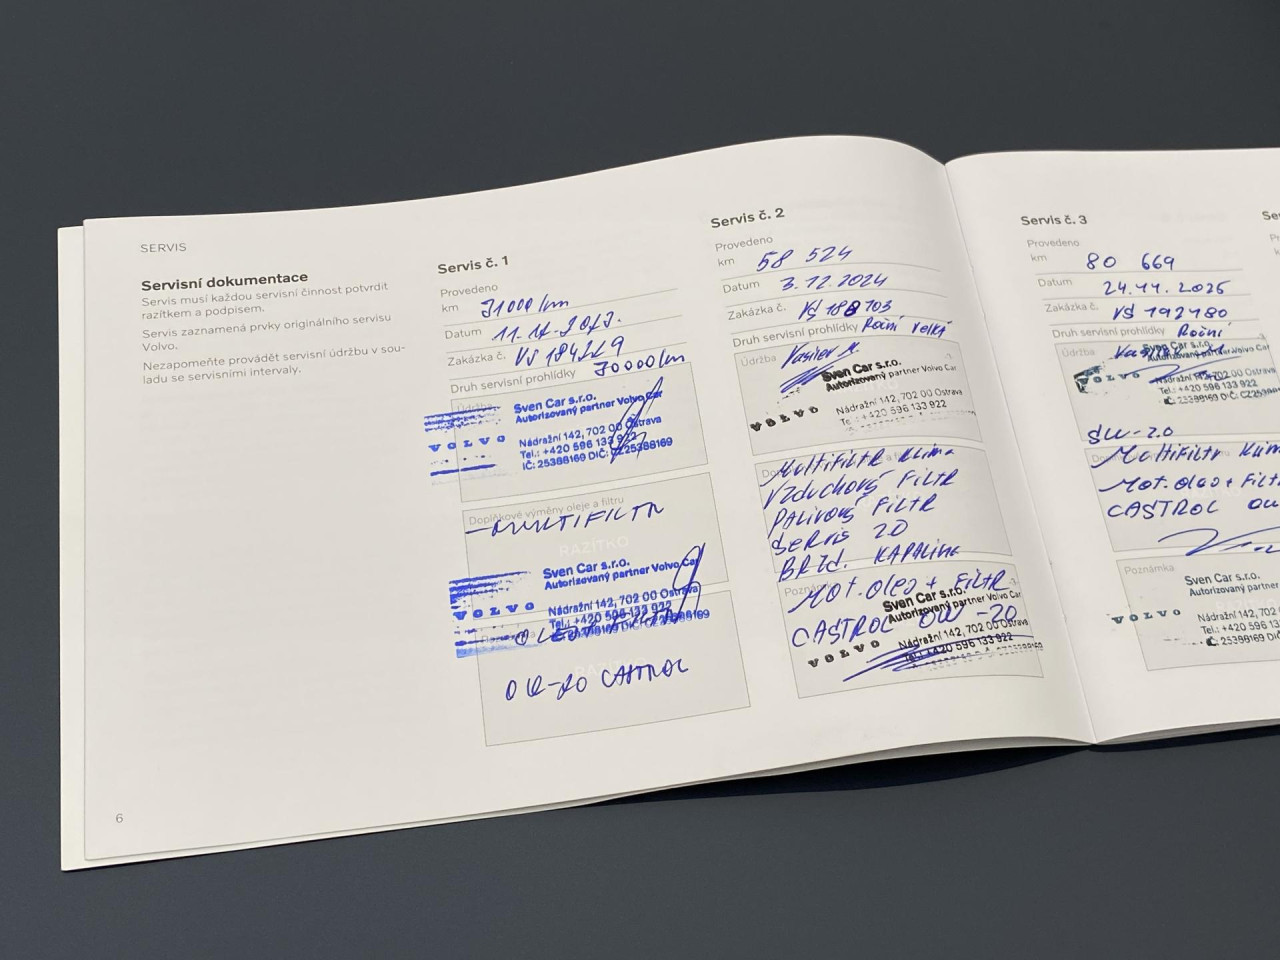 SERVIS
Servisní dokumentace
Servis musí každou servisní činnost potvrdit
razítkem a podpisem.
Servis zaznamená prvky originálního servisu
Volvo.
Nezapomeňte provádět servisní údržbu v sou-
ladu se servisními intervaly.
6
Servis č. 1
Provedeno
km 31000 km
Datum
Zakázka č. VS 184229
Druh servisní prohlídky 30000 km
Údržba
Sven Car s.r.o.
Autorizovaný partner Volvo Car
VOLVO
Nádražní 142, 702 00 Ostrava
Tel.: +420 596 133 922
IČ: 25388169 DIČ: CZ25388169
Doplňkové výměny oleje a filtru
- MULTIFILTR
RAZÍTKO
Sven Car s.r.o.
Autorizovaný partner Volvo Car
VOLVO
Nádražní 142, 702 00 Ostrava
Tel.: +420 596 133 922
CASTROL
Servis č. 2
Provedeno
km 58 524
Datum 3.12.2024
Zakázka č. VS 188703
Druh servisní prohlídky Roční velká
Údržba
Sven Car s.r.o.
Autorizovaný partner Volvo Car
VOLVO
Nádražní 142, 702 00 Ostrava
Tel.: +420 596 133 922
Multifiltr klima
Vzduchový filtr
Palivový filtr
Servis 2.0
Brzd. kapalina
Poznámka
Mot. olej + filtr
Sven Car s.r.o.
Autorizovaný partner Volvo Car
CASTROL 0W-20
VOLVO
Nádražní 142, 702 00 Ostrava
Tel.: +420 596 133 922
Servis č. 3
Provedeno
km 80 669
Datum 24.11.2025
Zakázka č. VS 192180
Druh servisní prohlídky Roční
Údržba
Sven Car s.r.o.
Autorizovaný partner Volvo Car
VOLVO
Nádražní 142, 702 00 Ostrava
Tel.: +420 596 133 922
SW-2.0
Multifiltr
Mot. olej + filt
CASTROL 0W
Poznámka
Sven Car s.r.o.
Autorizovaný partner Volvo
VOLVO
Nádražní 142, 702 00
Tel.: +420 596 133